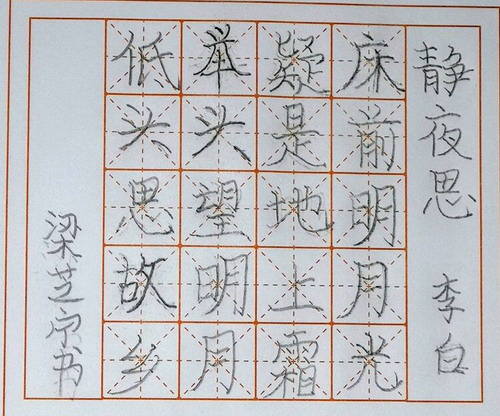 静夜思 李白
床前明月光
疑是地上霜
举头望明月
低头思故乡
梁芝宁书